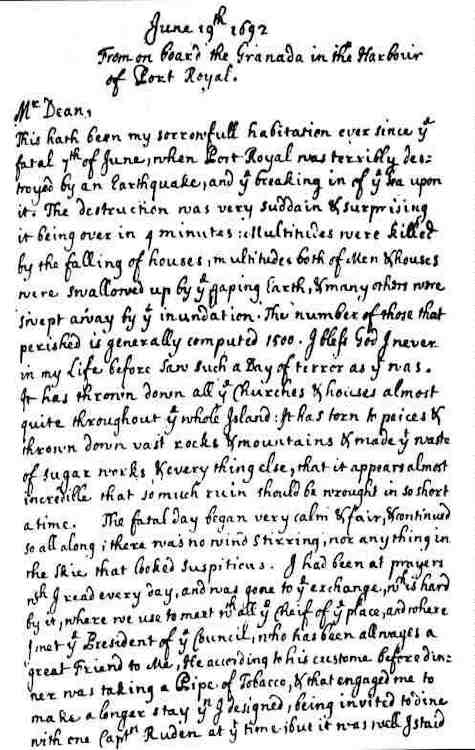 June 19th 1692
From on board the Granada in the Harbour
of Port Royal.
Mr Dean,
This hath been my sorrowfull habitation ever since ye
fatal 7th of June, when Port Royal was terribly des=
troyed by an Earthquake, and ye breaking in of ye sea upon
it. The destruction was very suddain & surprising
it being over in 4 minutes: Multitudes were killed
by the falling of houses, multitudes both of Men & houses
were swallowed up by ye gaping Earth, & many others were
swept away by ye inundation. The number of those that
perished is generally computed 1500. I bless God I never
in my Life before saw such a Day of terror as yt was.
It has thrown down all ye Churches & houses almost
quite throughout ye whole Island: It has torn to peices &
thrown down vast rocks & mountains & made yt waste
of sugar works & every thing else, that it appears almost
incredible that so much ruin should be wrought in so short
a time. The fatal day began very calm & fair, & continued
so all along; there was no wind stirring, nor any thing in
the skie that looked suspitious. I had been at prayers
wch I read every day, and was gone to ye exchange, wch is hard
by it, where we use to meet wth all ye cheif of ye place, and where
I met ye President of ye Council, who has been allwayes a
great Friend to Me, He according to his custome before din=
ner was taking a Pipe of Tobacco, & that engaged me to
make a longer stay yn I designed, being invited to dine
with one Captn Ruden at yt time; but it was well I staid